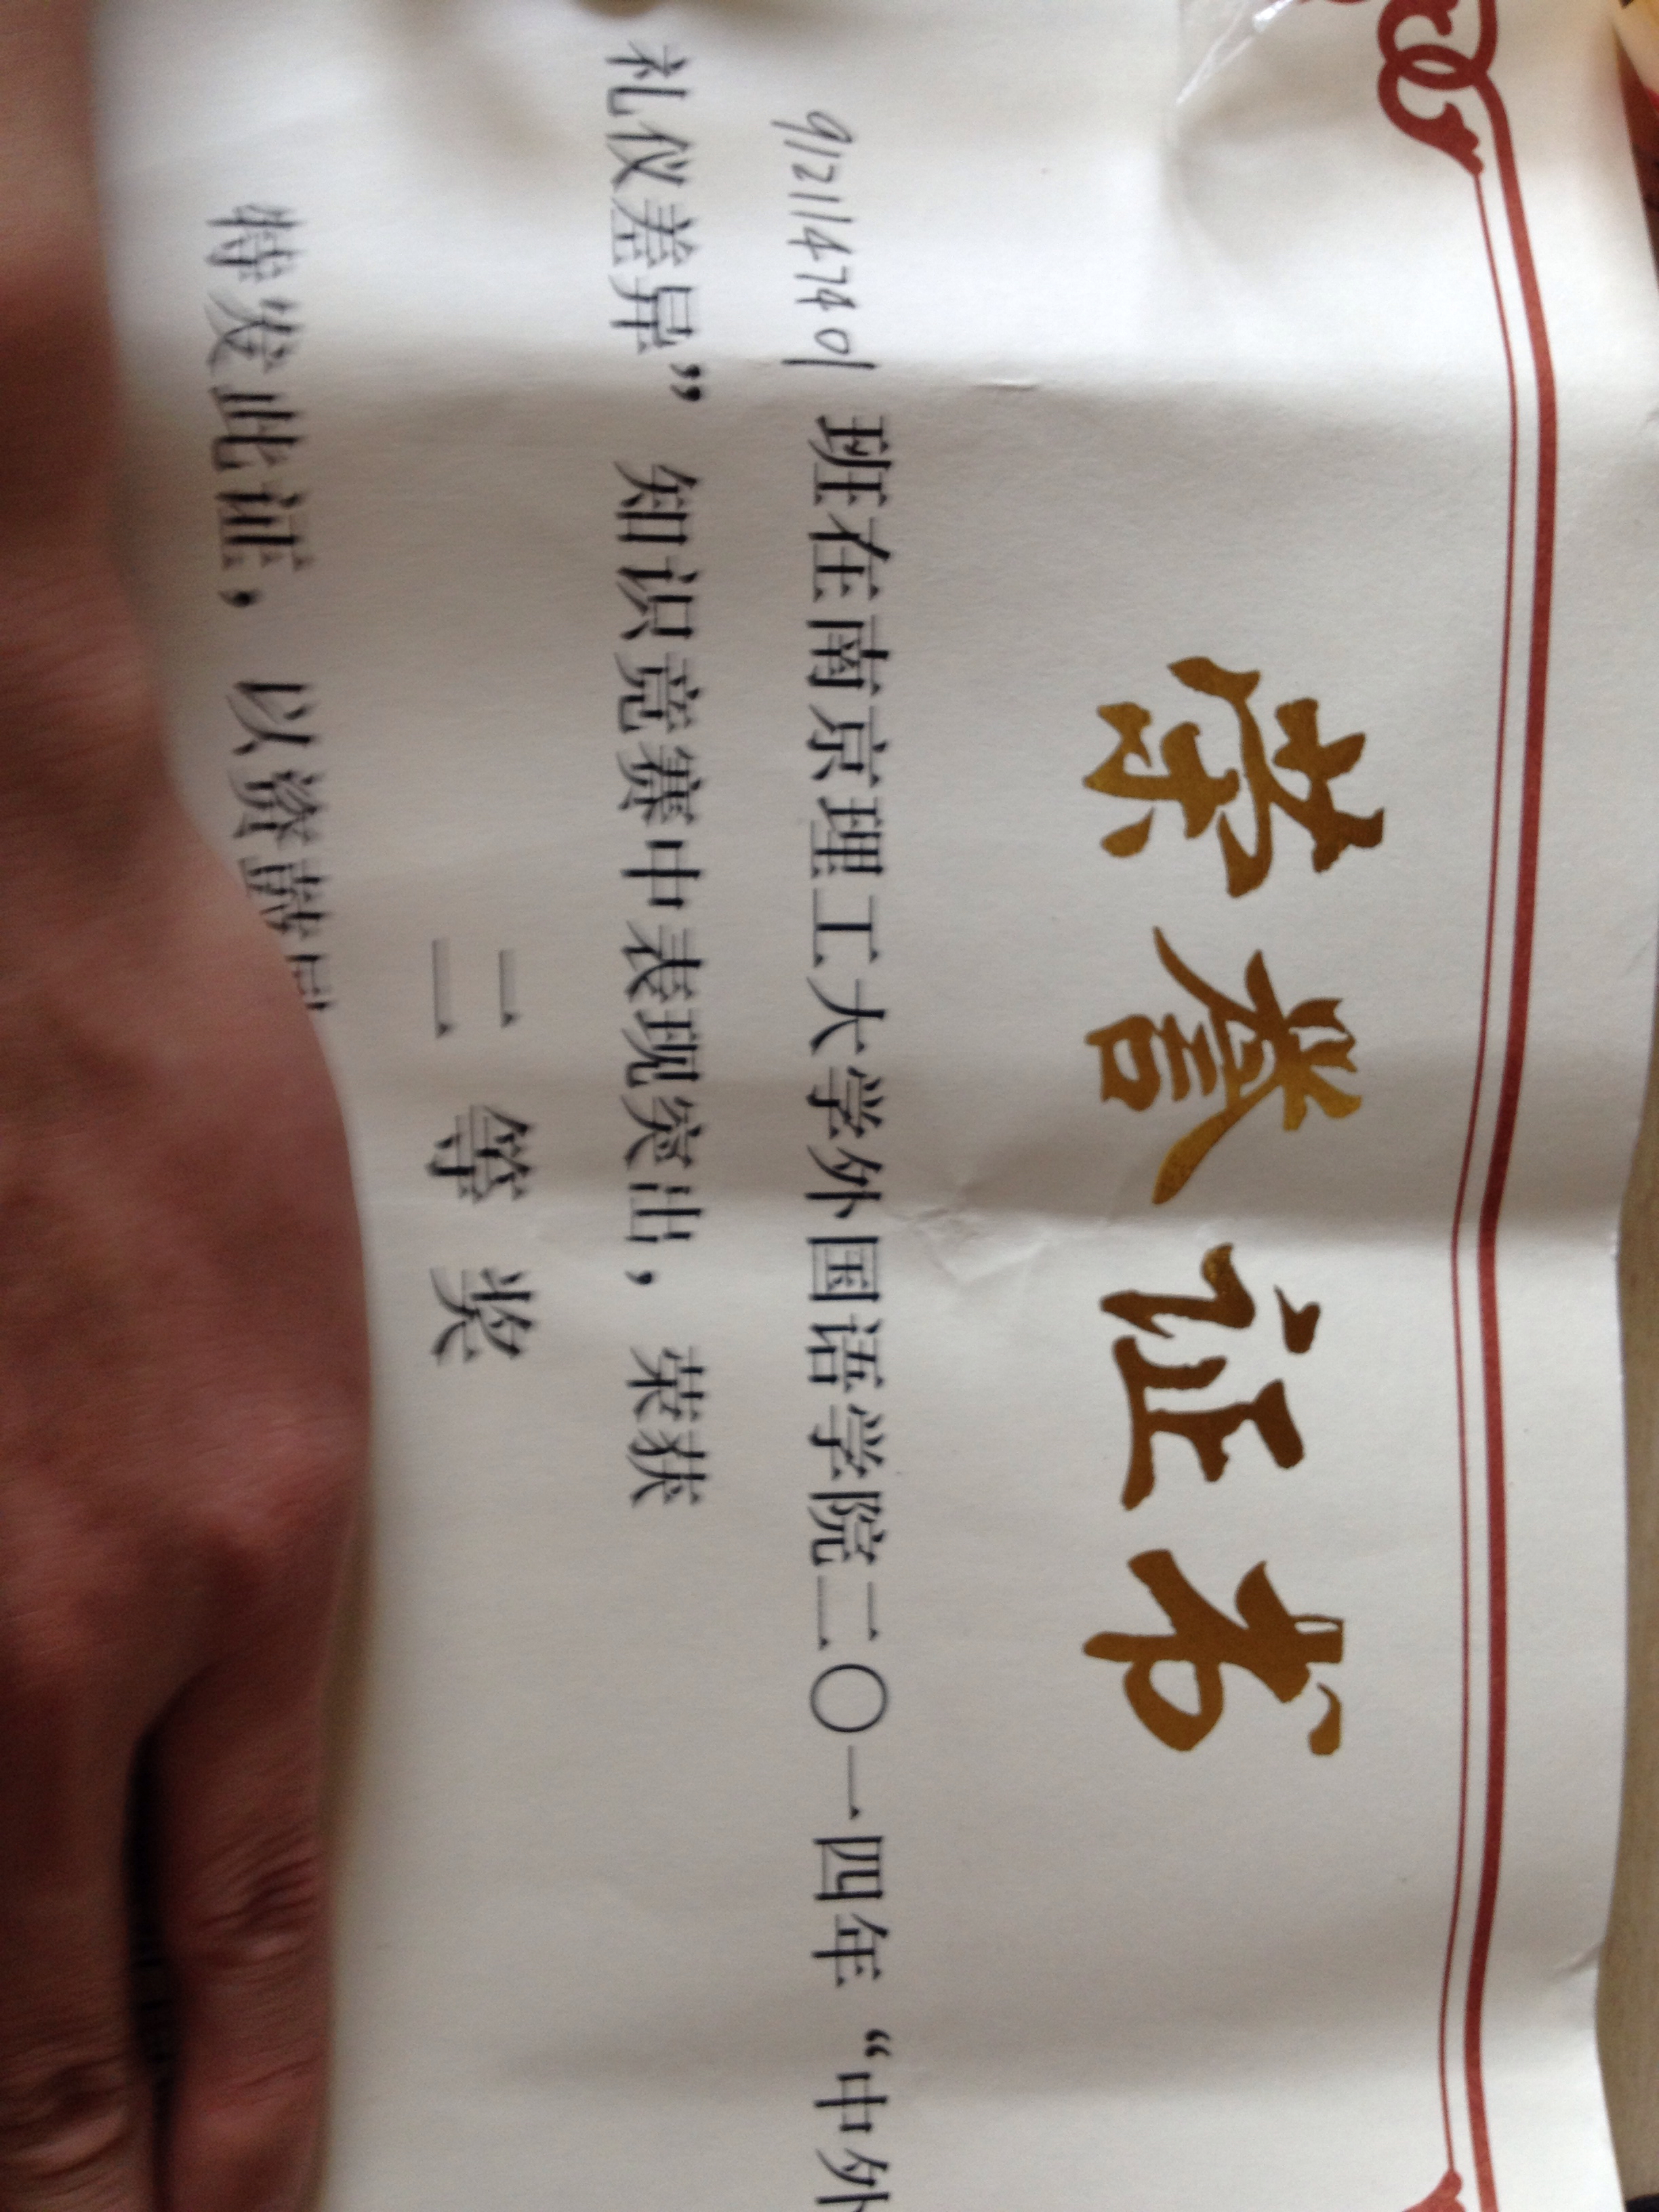 荣誉证书
9121147401 班在南京理工大学外国语学院二〇一四年“中外
礼仪差异”知识竞赛中表现突出，荣获
二等奖
特发此证，以资鼓励